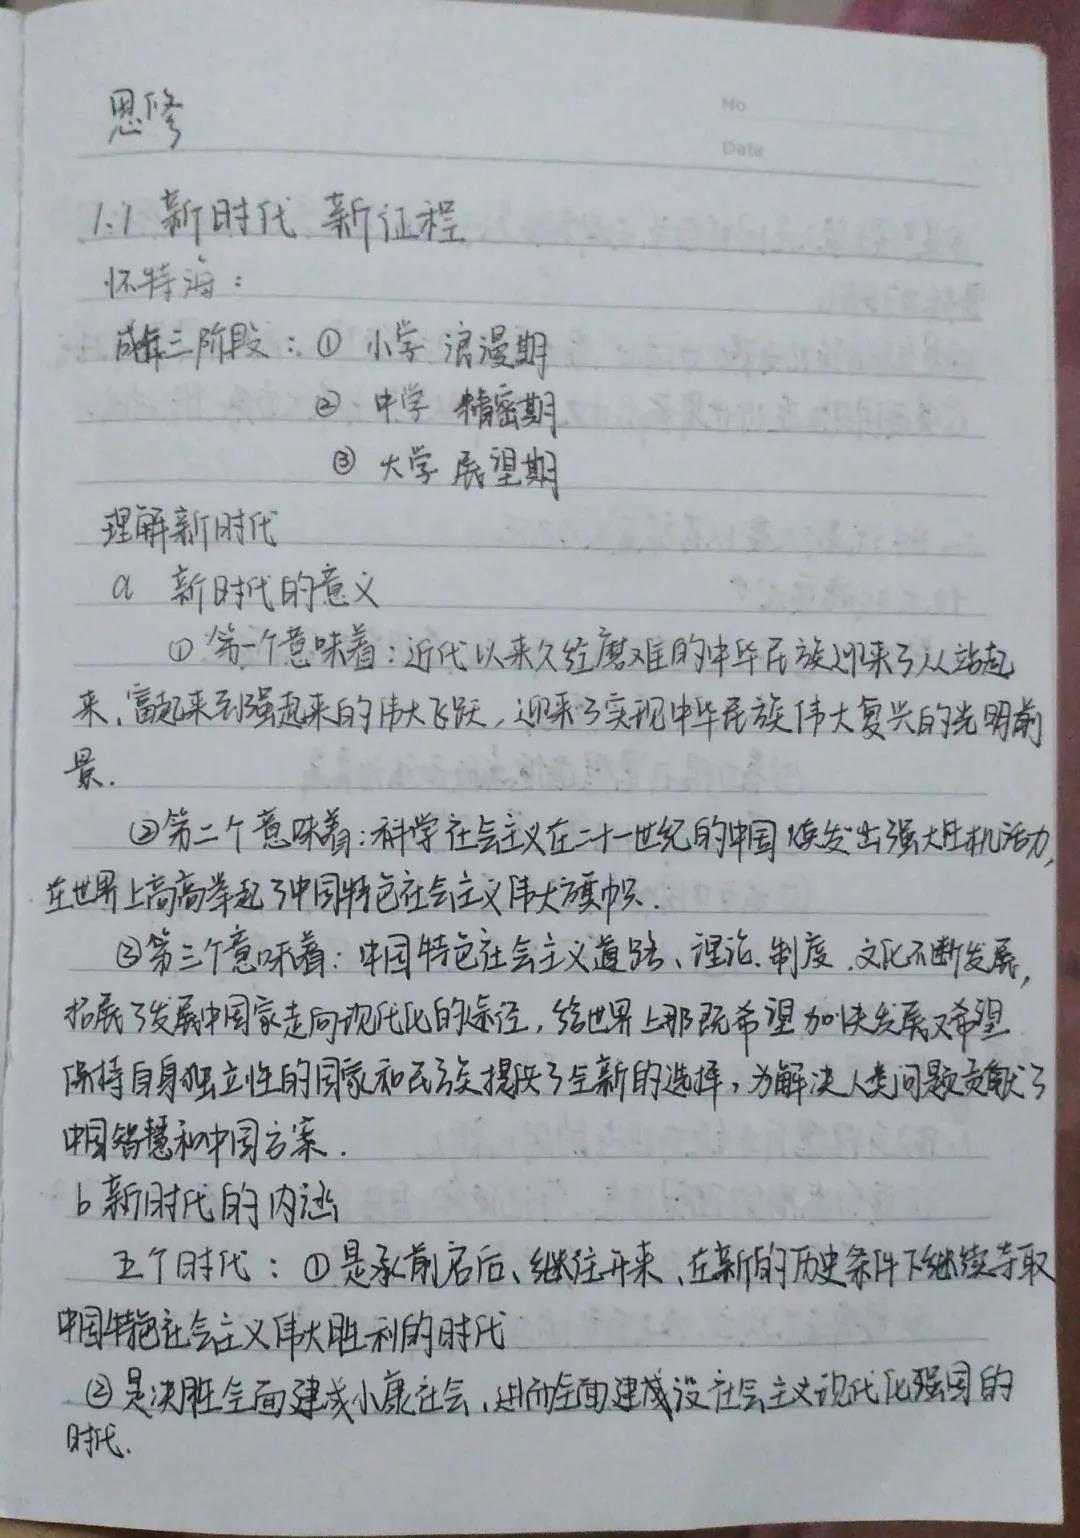 思修
No
Date
1.1 新时代 新征程
怀特海：
成年三阶段：① 小学 浪漫期
② 中学 精密期
③ 大学 展望期
理解新时代
a 新时代的意义
① 第一个意味着：近代以来久经磨难的中华民族迎来了从站起
来、富起来到强起来的伟大飞跃，迎来了实现中华民族伟大复兴的光明前
景.
②第二个意味着：科学社会主义在二十一世纪的中国焕发出强大生机活力，
在世界上高高举起了中国特色社会主义伟大旗帜.
③第三个意味着：中国特色社会主义道路、理论、制度、文化不断发展，
拓展了发展中国家走向现代化的途径，给世界上那既希望加快发展又希望
保持自身独立性的国家和民族提供了全新的选择，为解决人类问题贡献了
中国智慧和中国方案.
b 新时代的内涵
五个时代：①是承前启后、继往开来、在新的历史条件下继续夺取
中国特色社会主义伟大胜利的时代
②是决胜全面建成小康社会、进而全面建成设社会主义现代化强国的
时代.